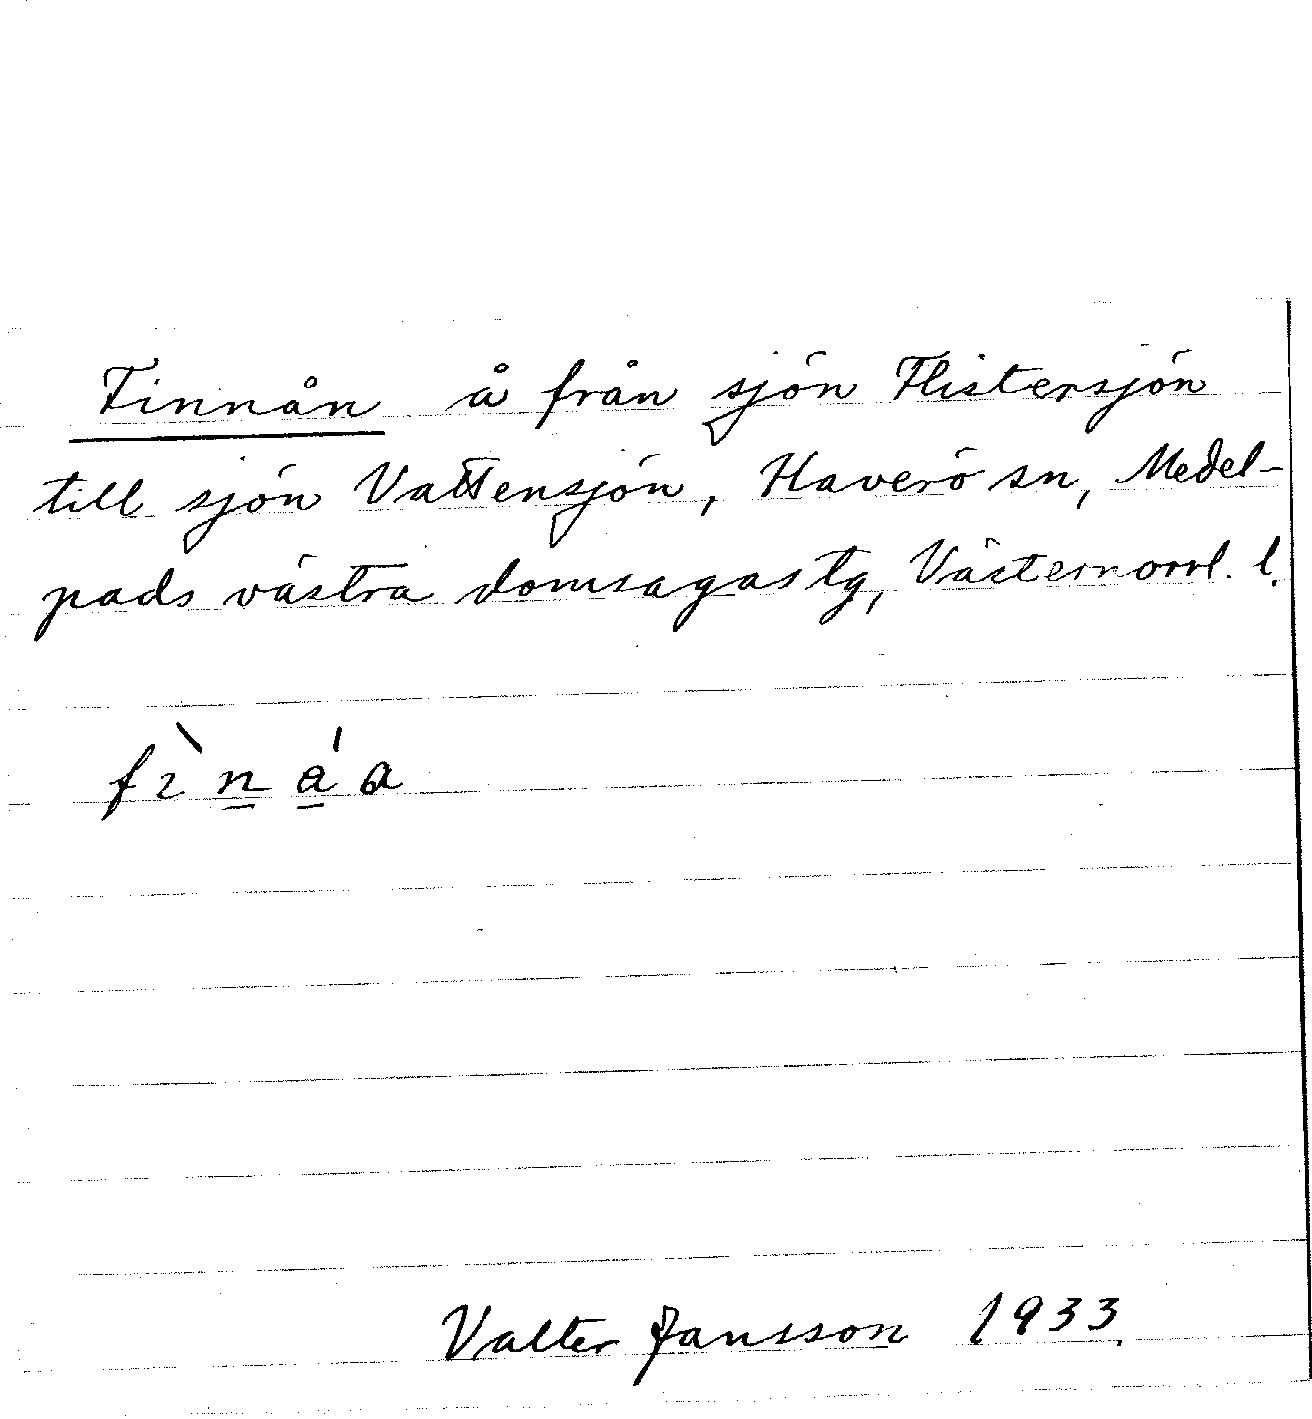 Finnån å från sjön Flistersjön
till sjön Vattensjön, Haverö sn, Medel-
pads västra domsagas tg, Västernorrl. l.
fìnáa
Valter Jansson 1933.